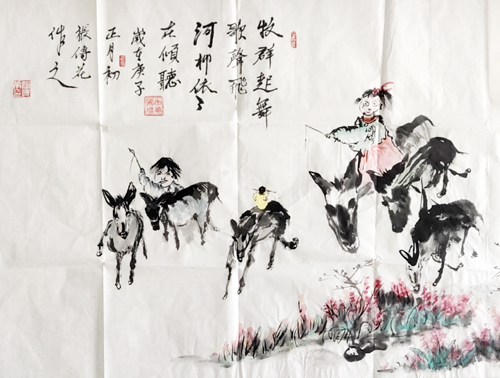 牧群起舞
歌聲飛
河柳依〻
在傾聽
歲在庚子
正月初
張倚花
作之